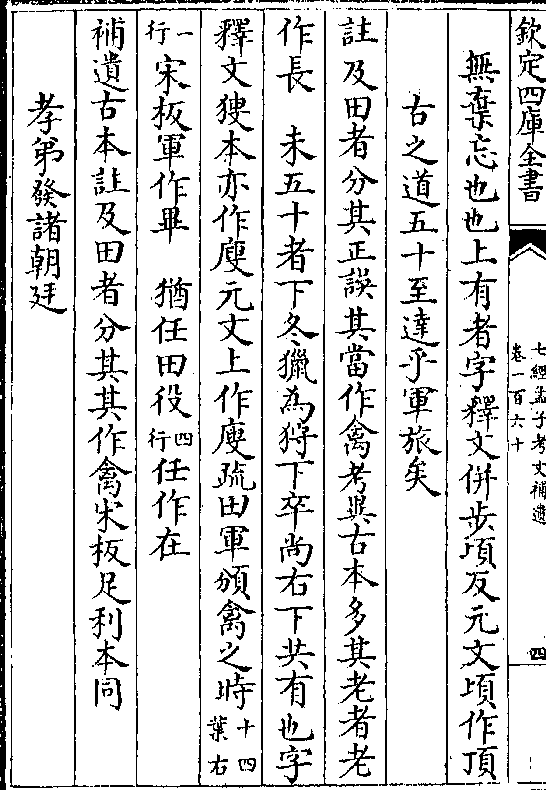 欽定四庫全書
七經孟子考文補遺
卷一百六十
四
無棄忘也也上有者字釋文併步項反元文項作頂
古之道五十至達乎軍旅矣
註及田者分其正誤其當作禽考異古本多其老者老
作長　未五十者下冬獵為狩下卒尚右下共有也字
釋文獀本亦作廋元文上作廋疏田軍頒禽之時十四葉右
一行宋板軍作畢　猶任田役四行任作在
補遺古本註及田者分其其作禽宋板足利本同
孝弟發諸朝廷